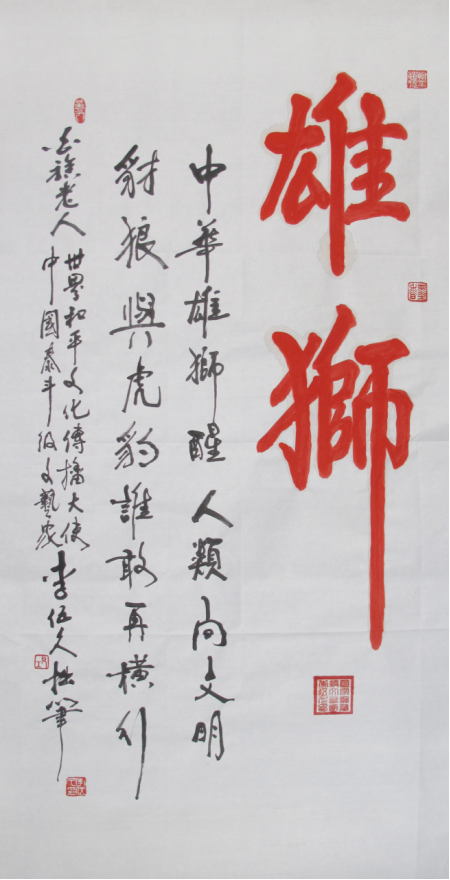 雄獅
中華雄獅醒人類向文明
豺狼與虎豹誰敢再橫行
白族老人
世界和平文化傳播大使
中國泰斗級文藝家
李伍久拙筆